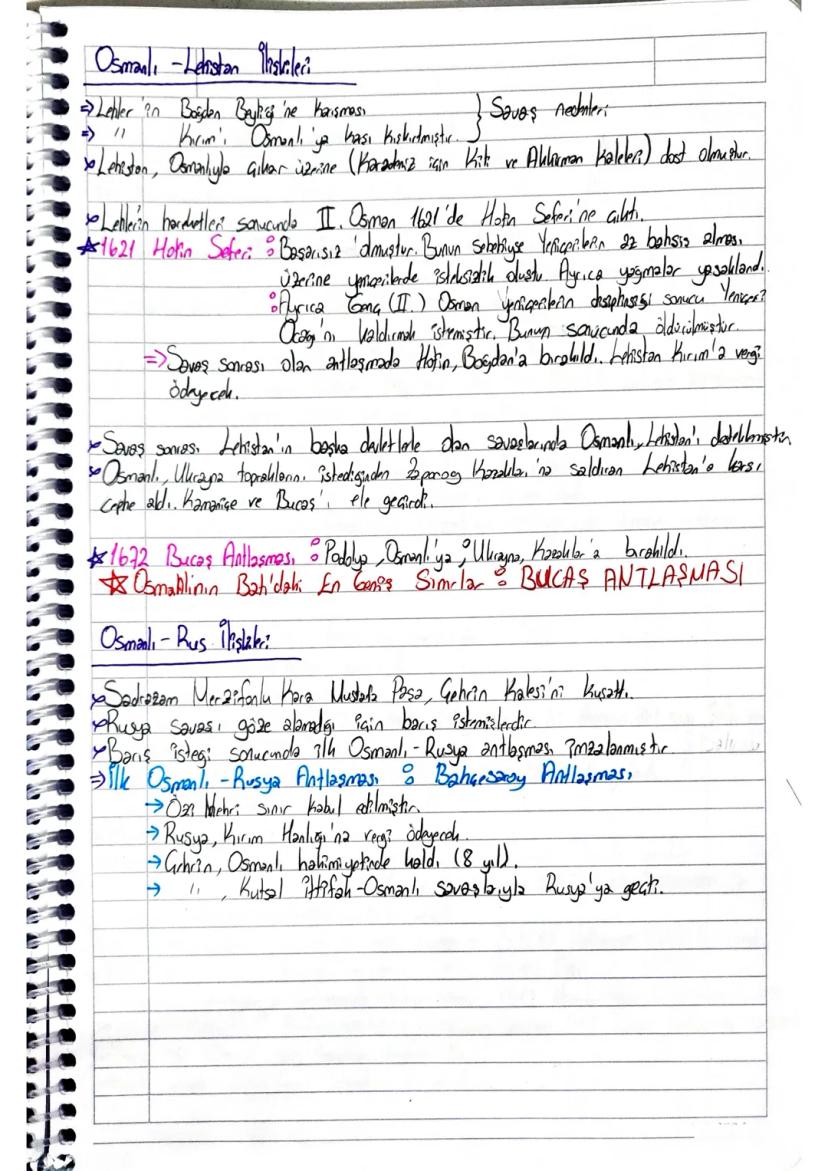 Osmanlı - Lehistan İlişkileri
⇒ Lehler'in Boğdan Beyliği'ne karışması } Savaş nedenleri
⇒ " Kırım'ı Osmanlı'ya karşı kışkırtmıştır.
Lehistan, Osmanlıyla çıkar üzerine (Karadeniz için Kili ve Akkirman Kaleleri) dost olmuştur.
Lehlerin hareketleri sonucunda II. Osman 1621'de Hotin Seferi'ne çıktı.
☆1621 Hotin Seferi : Başarısız olmuştur. Bunun sebebiyse Yeniçerilerin az bahşiş alması
üzerine yeniçerilerde isteksizlik oluştu. Ayrıca yağmalar yasaklandı.
: Ayrıca Genç (II.) Osman yeniçerilerin disiplinsizliği sonucu Yeniçeri
Ocağı'nı kaldırmak istemiştir. Bunun sonucunda öldürülmüştür.
⇒ Savaş sonrası olan antlaşmada Hotin, Boğdan'a bırakıldı. Lehistan Kırım'a vergi
ödeyecek.
Savaş sonrası Lehistan'ın başka devletlerle olan savaşlarında Osmanlı, Lehistan'ı desteklemiştir.
Osmanlı, Ukrayna topraklarını istediğinden Zaporog Kazakları'na saldıran Lehistan'a karşı
cephe aldı. Kamaniçe ve Bucaş'ı ele geçirdi.
☆1672 Bucaş Antlaşması : Podolya, Osmanlı'ya ; Ukrayna, Kazaklar'a bırakıldı.
☆ Osmanlının Batı'daki En Geniş Sınırlar : BUCAŞ ANTLAŞMASI
Osmanlı - Rus İlişkileri
Sadrazam Merzifonlu Kara Mustafa Paşa, Çehrin Kalesi'ni kuşattı.
Rusya savaşı göze alamadığı için barış istemişlerdir.
Barış isteği sonucunda ilk Osmanlı - Rusya antlaşması imzalanmıştır.
⇒ İlk Osmanlı - Rusya Antlaşması : Bahçesaray Antlaşması
→ Özi Nehri sınır kabul edilmiştir.
→ Rusya, Kırım Hanlığı'na vergi ödeyecek.
→ Çehrin, Osmanlı hakimiyetinde kaldı (8 yıl).
→ " , Kutsal ittifak - Osmanlı savaşlarıyla Rusya'ya geçti.